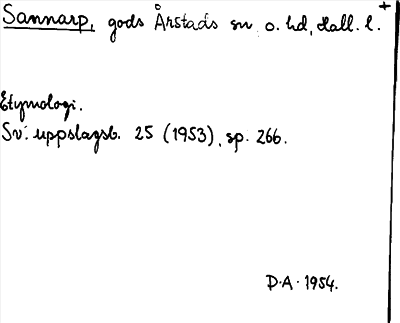 Sannarp, gods Årstads sn o. hd, Hall. l. +
Etymologi.
Sv. uppslagsb. 25 (1953), sp. 266.
D.A. 1954.